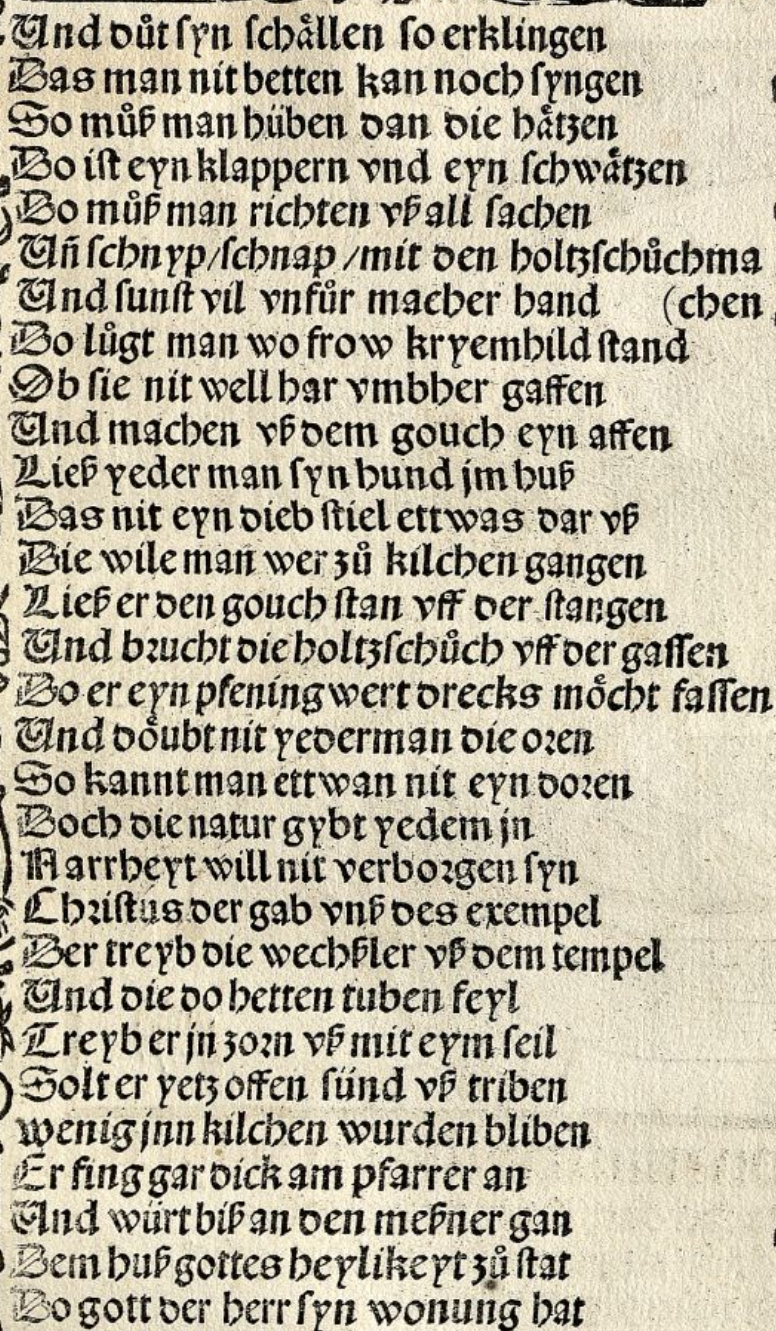 Vnd důt syn schållen so erklingen
Das man nit betten kan noch syngen
So můß man hüben dan die håtzen
Do ist eyn klappern vnd eyn schwåtzen
Do můß man richten vß all sachen
Vñ schnyp/schnap/mit den holtzschůchma
Vnd sunst vil vnfůr macher hand (chen
Do lůgt man wo frow kryemhild stand
Ob sie nit well har vmbher gaffen
Vnd machen vß dem gouch eyn affen
Ließ yeder man syn hund jm huß
Das nit eyn dieb stiel ettwas dar vß
Die wile man wer zů kilchen gangen
Ließ er den gouch stan vff der stangen
Vnd brucht die holtzschůch vff der gassen
Do er eyn pfening wert drecks mo̊cht fassen
Vnd do̊ubt nit yederman die oren
So kannt man ettwan nit eyn doren
Doch die natur gybt yedem jn
Narrheyt will nit verborgen syn
Christus der gab vnß des exempel
Der treyb die wechßler vß dem tempel
Vnd die do hetten tuben feyl
Treyb er jn zorn vß mit eym seil
Solt er yetz offen sünd vß triben
wenig jnn kilchen wurden bliben
Er fing gar dick am pfarrer an
Vnd würt biß an den meßner gan
Dem huß gottes heylikeyt zů stat
Do gott der herr syn wonung hat